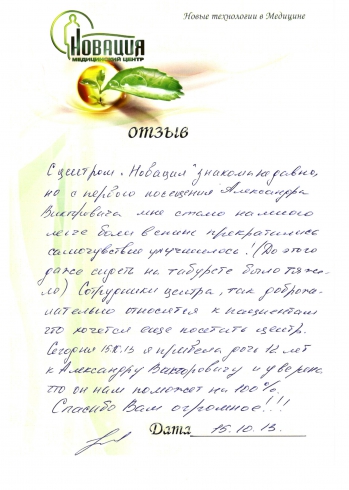 Новые технологии в Медицине
НОВАЦИЯ
МЕДИЦИНСКИЙ ЦЕНТР
ОТЗЫВ
С центром "Новация" знакома недавно,
но с первого посещения Александра
Викторовича мне стало намного
легче боли в спине прекратились
самочувствие улучшилось! (До этого
даже сидеть на табурете было тяже-
ло) Сотрудники центра, так доброже-
лательно относятся к пациентам
что хочется ещё посетить центр.
Сегодня 15.10.13 я привела дочь 12 лет
к Александру Викторовичу и уверена
что он нам поможет на 100%.
Спасибо Вам огромное!!!
Дата 15.10.13.